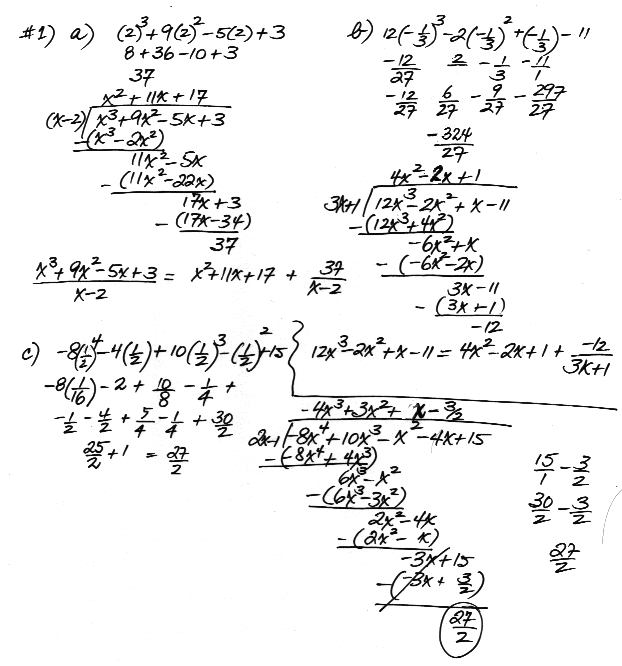 #1) a) (2)³+9(2)²-5(2)+3
8+36-10+3
37
x²+11x+17
(x-2) x³+9x²-5x+3
-(x³-2x²)
11x²-5x
-(11x²-22x)
17x+3
-(17x-34)
37
x³+9x²-5x+3 / x-2 = x²+11x+17 + 37 / x-2
b) 12(-1/3)³-2(-1/3)²+(-1/3)-11
-12/27 - 1/3 - 11/1
-12/27 6/27 - 9/27 - 297/27
-324/27
4x²-2x+1
3x+1 12x³-2x²+x-11
-(12x³+4x²)
-6x²+x
-(-6x²-2x)
3x-11
-(3x+1)
-12
12x³-2x²+x-11 = 4x²-2x+1 + -12 / 3x+1
c) -8(1/2)⁴-4(1/2)+10(1/2)³-(1/2)²+15
-8(1/16)-2+10/8-1/4+
-1/2-4/2+5/4-1/4+30/2
25/2+1 = 27/2
-4x³+3x²+x-3/2
2x-1 -8x⁴+10x³-x²-4x+15
-(-8x⁴+4x³)
6x³-x²
-(6x³-3x²)
2x²-4x
-(2x²-x)
-3x+15
-(-3x+3/2)
27/2
15/1-3/2
30/2-3/2
27/2